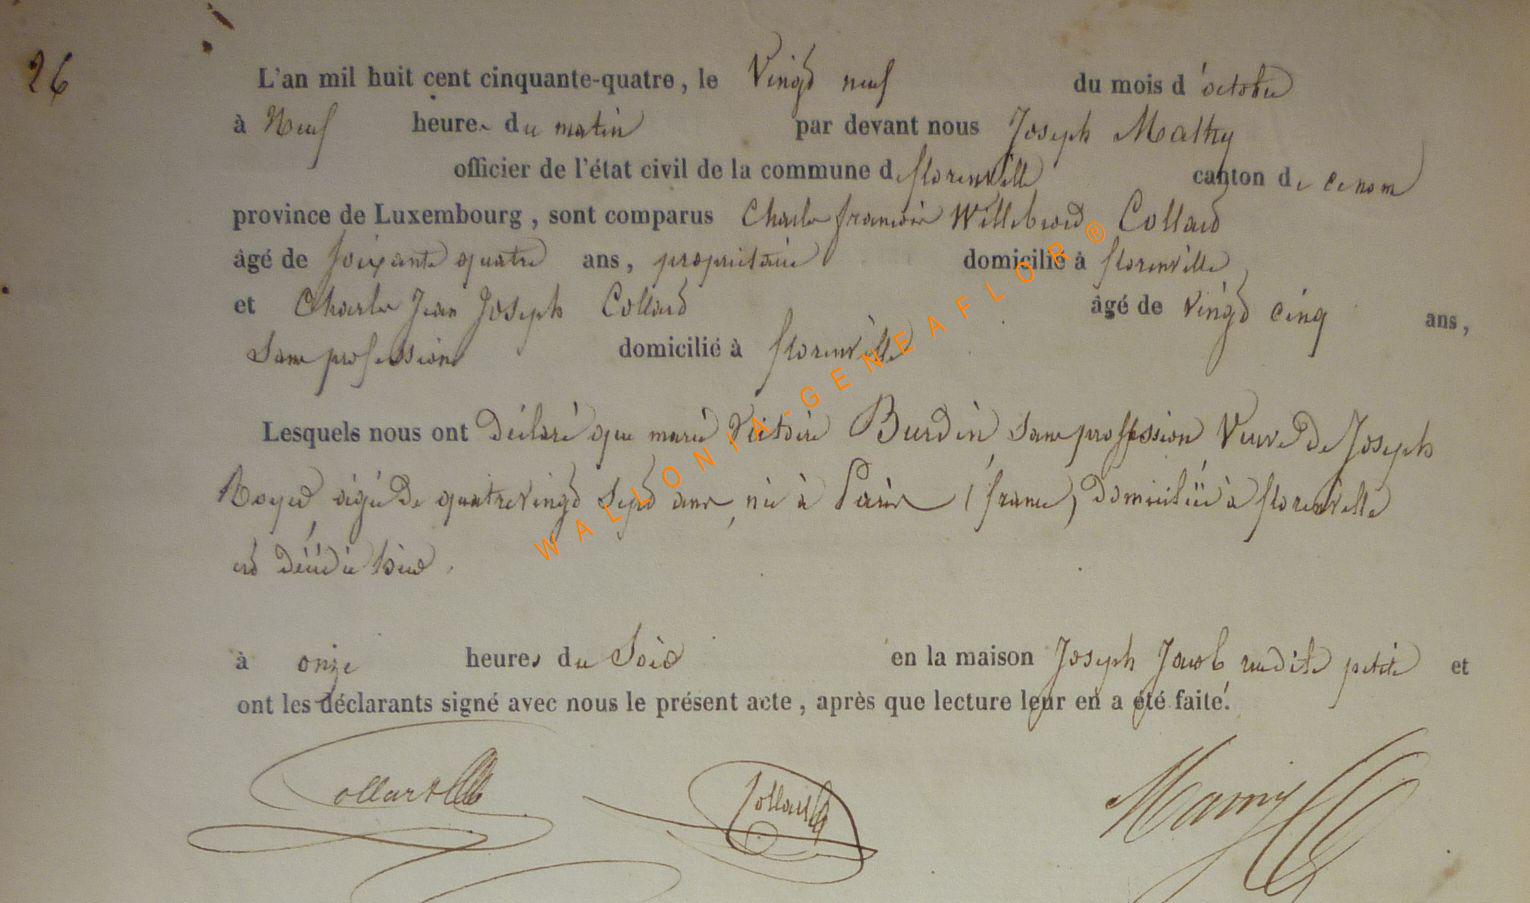 26
L'an mil huit cent cinquante-quatre, le Vingt neuf du mois d'octobre
à Neuf heures du matin par devant nous Joseph Mathy
officier de l'état civil de la commune de florenville canton de ce nom
province de Luxembourg, sont comparus Charles françois Willebrord Collard
âgé de soixante quatre ans, propriétaire domicilié à florenville
et Charles Jean Joseph Collard âgé de vingt cinq ans,
Sans profession domicilié à florenville
Lesquels nous ont déclaré que marie Victoire Burdin, sans profession Veuve de Joseph
agée de quatrevingt sept ans, née à Paris (france) domiciliée à florenville
est décédée hier.
à onze heures du Soir en la maison Joseph Jacob, rue dite petite et
ont les déclarants signé avec nous le présent acte, après que lecture leur en a été faite.
Collard Collard
WALLONIA-GENEAFLOR®